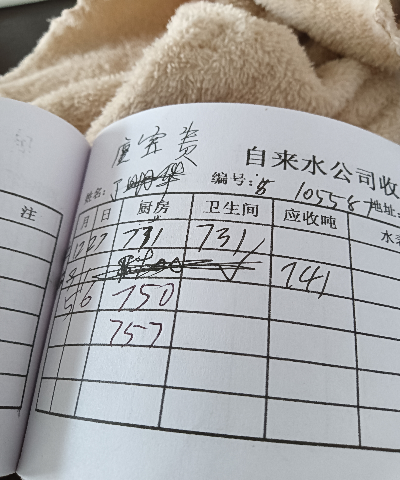 自来水公司收
姓名: 编号: 10558 地址:
注 月 日 厨房 卫生间 应收吨
12 27 731 731
741
5 6 750
757